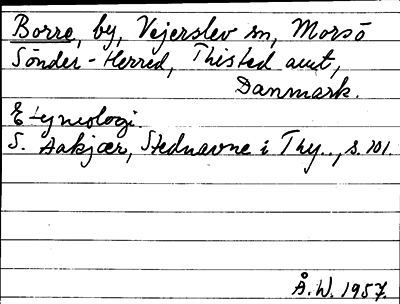 Borre, by, Vejerslev sn, Morsö
Sönder-Herred, Thisted amt,
Danmark.
Etymologi
S. Aakjær, Stednavne i Thy.., s. 101.
Å.W. 1957.